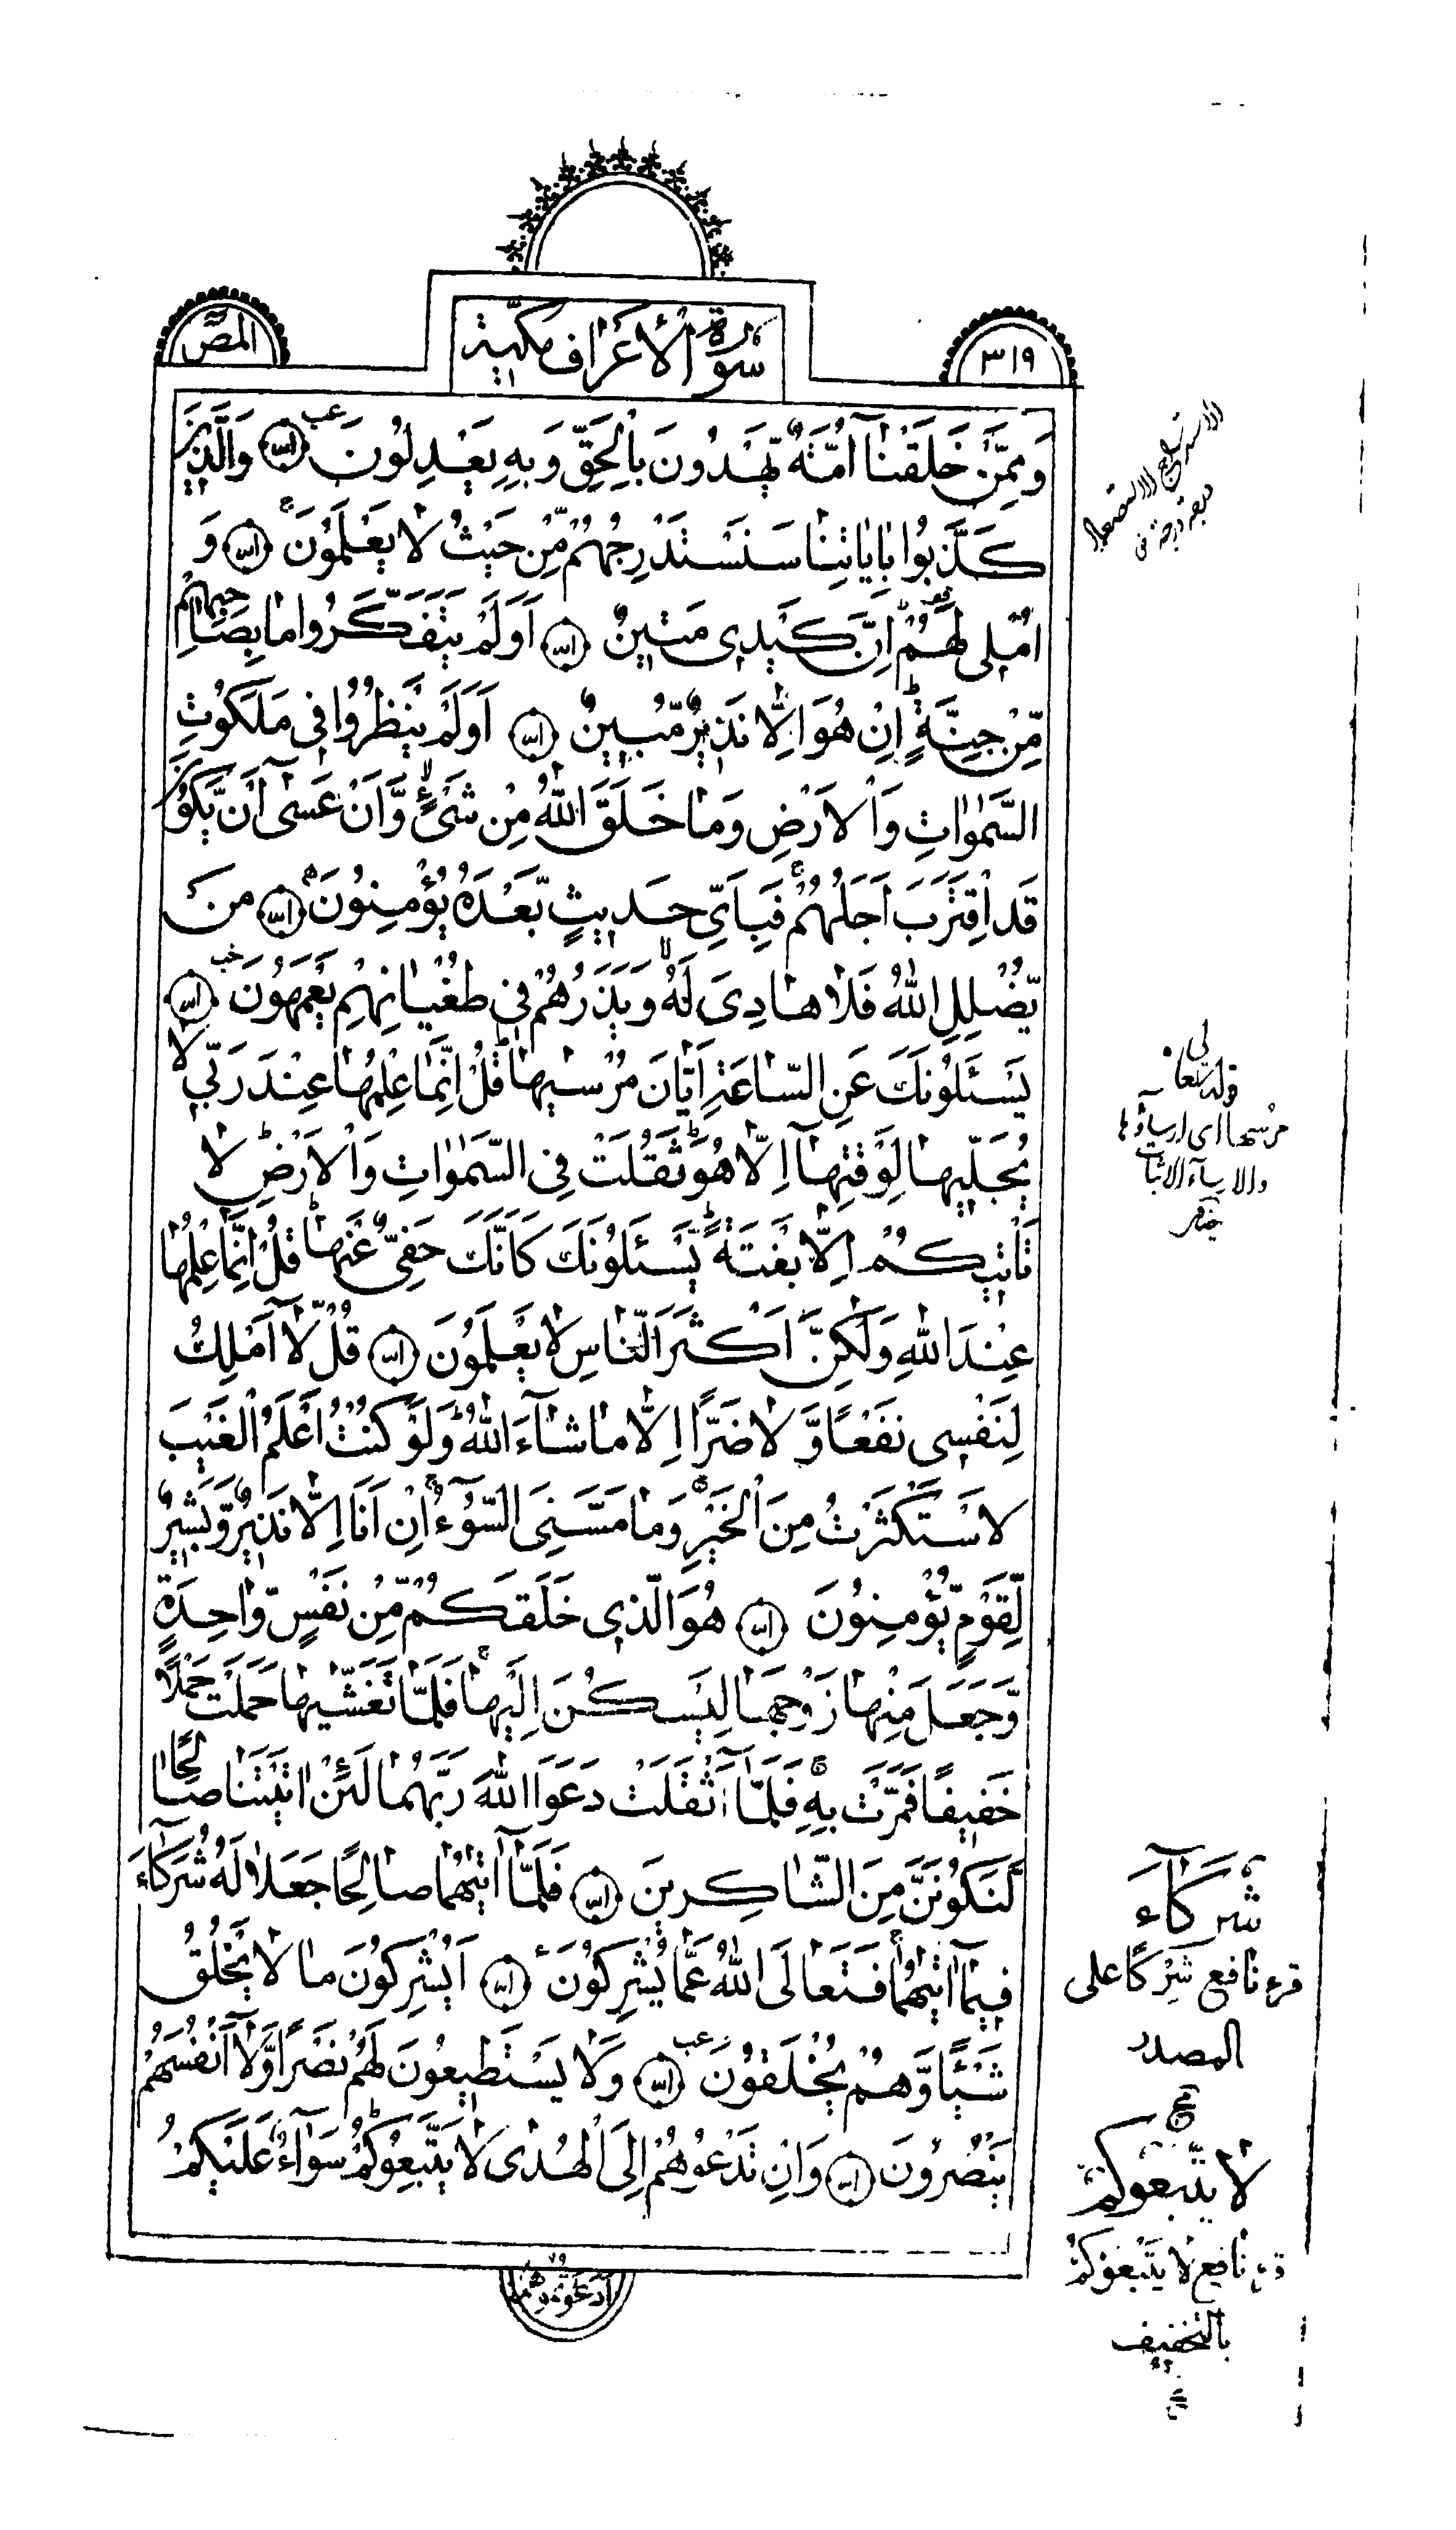 ٣١٩
سورة الأعراف مكية
المص
وَمِمَّنْ خَلَقْنَآ أُمَّةٌ يَّهْدُونَ بِالْحَقِّ وَبِهِ يَعْدِلُونَ ۝ وَالَّذِينَ
كَذَّبُوا بِاٰيَاتِنَا سَنَسْتَدْرِجُهُمْ مِّنْ حَيْثُ لَا يَعْلَمُونَ ۝ وَ
اُمْلِي لَهُمْ اِنَّ كَيْدِي مَتِينٌ ۝ اَوَلَمْ يَتَفَكَّرُوا مَا بِصَاحِبِهِمْ
مِّنْ جِنَّةٍ اِنْ هُوَ اِلَّا نَذِيرٌ مُّبِينٌ ۝ اَوَلَمْ يَنْظُرُوا فِي مَلَكُوتِ
السَّمٰوٰاتِ وَالْاَرْضِ وَمَا خَلَقَ اللّٰهُ مِنْ شَيْءٍ وَّاَنْ عَسٰٓى اَنْ يَّكُونَ
قَدِ اقْتَرَبَ اَجَلُهُمْ فَبِاَيِّ حَدِيثٍ بَّعْدَهُ يُؤْمِنُونَ ۝ مَنْ
يُّضْلِلِ اللّٰهُ فَلَا هَادِيَ لَهُ وَيَذَرُهُمْ فِي طُغْيَانِهِمْ يَعْمَهُونَ ۝
يَسْـَٔلُونَكَ عَنِ السَّاعَةِ اَيَّانَ مُرْسٰيهَا قُلْ اِنَّمَا عِلْمُهَا عِنْدَ رَبِّي لَا
يُجَلِّيهَا لِوَقْتِهَآ اِلَّا هُوَ ثَقُلَتْ فِي السَّمٰوٰاتِ وَالْاَرْضِ لَا
تَاْتِيكُمْ اِلَّا بَغْتَةً يَّسْـَٔلُونَكَ كَاَنَّكَ حَفِيٌّ عَنْهَا قُلْ اِنَّمَا عِلْمُهَا
عِنْدَ اللّٰهِ وَلٰكِنَّ اَكْثَرَ النَّاسِ لَا يَعْلَمُونَ ۝ قُلْ لَّآ اَمْلِكُ
لِنَفْسِي نَفْعًا وَّلَا ضَرًّا اِلَّا مَا شَآءَ اللّٰهُ وَلَوْ كُنْتُ اَعْلَمُ الْغَيْبَ
لَاسْتَكْثَرْتُ مِنَ الْخَيْرِ وَمَا مَسَّنِيَ السُّوٓءُ اِنْ اَنَا اِلَّا نَذِيرٌ وَّبَشِيرٌ
لِّقَوْمٍ يُّؤْمِنُونَ ۝ هُوَ الَّذِي خَلَقَكُمْ مِّنْ نَفْسٍ وَّاحِدَةٍ
وَّجَعَلَ مِنْهَا زَوْجَهَا لِيَسْكُنَ اِلَيْهَا فَلَمَّا تَغَشّٰيهَا حَمَلَتْ حَمْلًا
خَفِيفًا فَمَرَّتْ بِهِ فَلَمَّآ اَثْقَلَتْ دَعَوَا اللّٰهَ رَبَّهُمَا لَئِنْ اٰتَيْتَنَا صَالِحًا
لَّنَكُونَنَّ مِنَ الشَّاكِرِينَ ۝ فَلَمَّآ اٰتٰيهُمَا صَالِحًا جَعَلَا لَهُ شُرَكَآءَ
فِيمَآ اٰتٰيهُمَا فَتَعَالَى اللّٰهُ عَمَّا يُشْرِكُونَ ۝ اَيُشْرِكُونَ مَا لَا يَخْلُقُ
شَيْئًا وَّهُمْ يُخْلَقُونَ ۝ وَلَا يَسْتَطِيعُونَ لَهُمْ نَصْرًا وَّلَآ اَنْفُسَهُمْ
يَنْصُرُونَ ۝ وَاِنْ تَدْعُوهُمْ اِلَى الْهُدٰى لَا يَتَّبِعُوكُمْ سَوَآءٌ عَلَيْكُمْ
قوله تعالى
مرسها اى ارساؤها
والارساء الاثبات
شُرَكَآءَ
قرء نافع شِرْكًا على
المصدر
لا يتّبعوكم
قرء نافع لا يَتْبَعُوكُمْ
بالتخفيف
اَدَعَوْتُمُوهُمْ